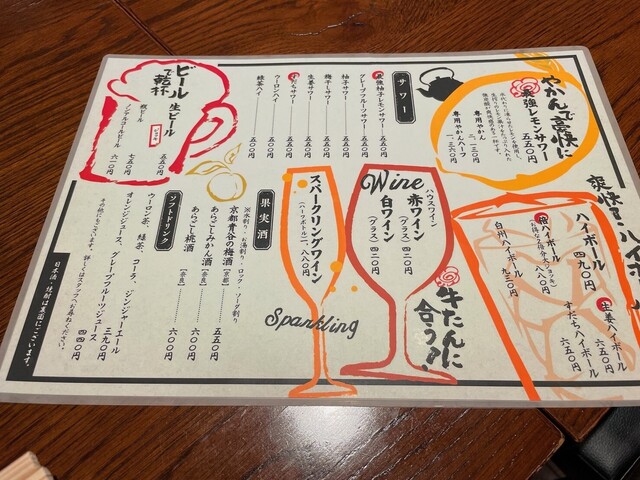 やかんで豪快に
最強レモンサワー 五五〇円
専用やかん 一、三六〇円
専用やかんハーフ
サワー
最強柚子レモンサワー 五五〇円
グレープフルーツサワー 五五〇円
柚子サワー 五五〇円
梅干しサワー 五五〇円
生姜サワー 五五〇円
すだちサワー 五五〇円
ウーロンハイ 五五〇円
緑茶ハイ 五五〇円
ビールで乾杯
生ビール 五五〇円
瓶ビール 七五〇円
ノンアルコールビール 六一〇円
爽快!ハイボール
ハイボール 四九〇円
一、八八〇円
白州ハイボール 九三〇円
生姜ハイボール 六五〇円
すだちハイボール 六五〇円
牛たんに合う!
Wine
ハウスワイン
赤ワイン(グラス) 四二〇円
白ワイン(グラス) 四二〇円
スパークリングワイン
(ハーフボトル) 一、八八〇円
Sparkling
果実酒
※水割り・お湯割り・ロック・ソーダ割り
京都青谷の梅酒【京都】 五五〇円
あらごしみかん酒【奈良】 六〇〇円
あらごし桃酒【奈良】 六〇〇円
ソフトドリンク
ウーロン茶、緑茶、コーラ、ジンジャーエール 三九〇円
オレンジジュース、グレープフルーツジュース 四四〇円
その他にもございます。詳しくはスタッフへお尋ねください。
日本酒・焼酎は裏面にございます。